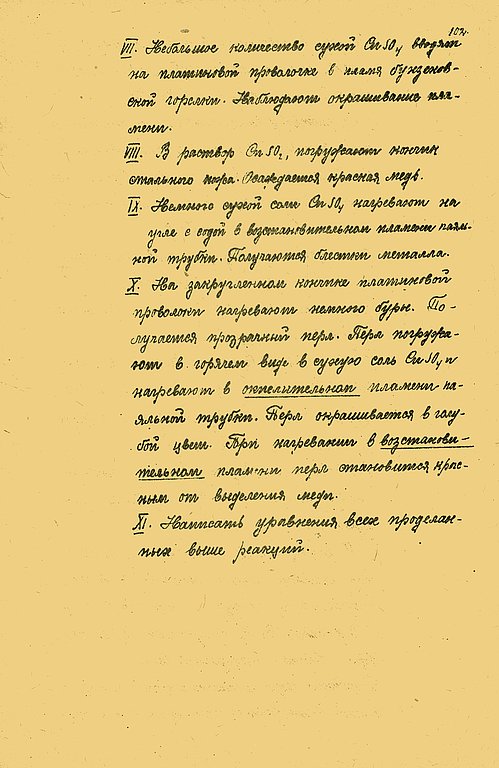 102.
VII. Небольшое количество сухой CuSO₄ вводят
на платиновой проволочке в пламя бунзенов-
ской горелки. Наблюдают окрашивание пла-
мени.
VIII. В раствор CuSO₄, погружают кончик
стального ножа. Осаждается красная медь.
IX. Немного сухой соли CuSO₄ нагревают на
угле с содой в восстановительном пламени паял-
ной трубки. Получаются блестки металла.
X. На закругленном кончике платиновой
проволоки нагревают немного буры. По-
лучается прозрачный перл. Перл погружа-
ют в горячем виде в сухую соль CuSO₄ и
нагревают в окислительном пламени па-
яльной трубки. Перл окрашивается в голу-
бой цвет. При нагревании в возстанови-
тельном пламени перл становится крас-
ным от выделения меди.
XI. Написать уравнения всех проделан-
ных выше реакций.